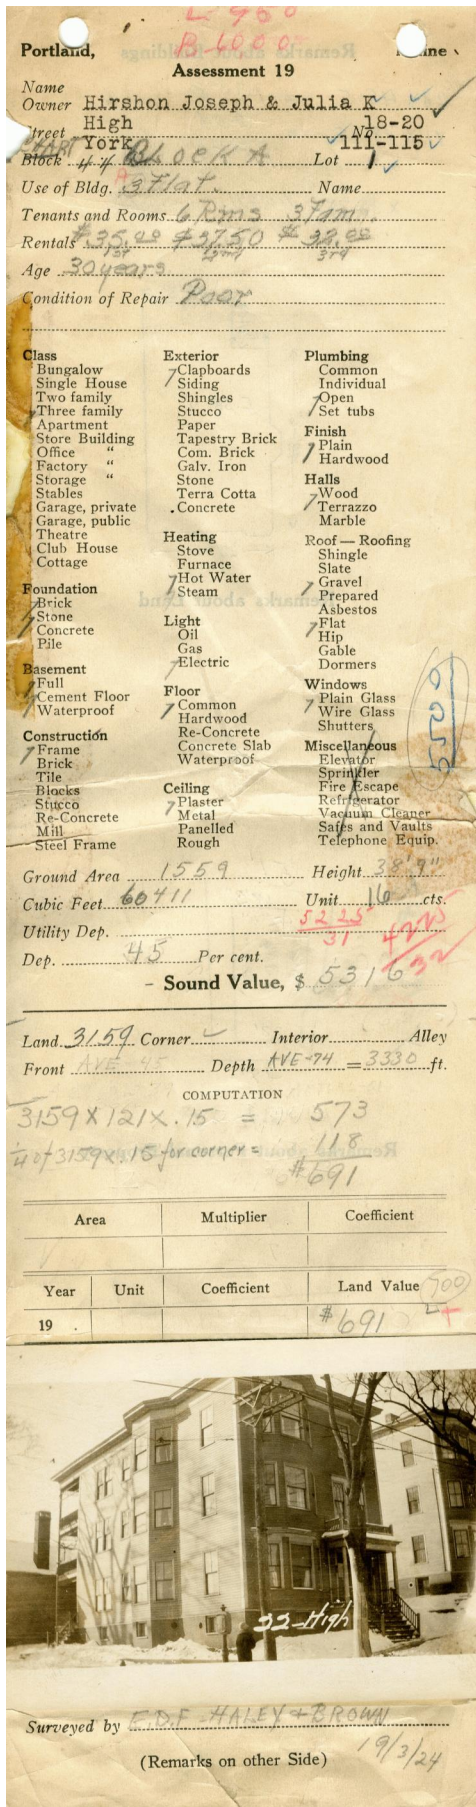 L-950
B-6000-
Portland, Maine
Assessment 19
Name
Owner Hirshon Joseph & Julia K
High 18-20
Street York No. 111-115
CHART
Block 44 Block A Lot 1
Use of Bldg. 3 Flat. Name
Tenants and Rooms 6 Rms 3 Fam.
Rentals $35.00 $37.50 $32.00
1st 2nd 3rd
Age 30 years
Condition of Repair Poor
Class
Bungalow
Single House
Two family
Three family
Apartment
Store Building
Office "
Factory "
Storage "
Stables
Garage, private
Garage, public
Theatre
Club House
Cottage
Foundation
Brick
Stone
Concrete
Pile
Basement
Full
Cement Floor
Waterproof
Construction
Frame
Brick
Tile
Blocks
Stucco
Re-Concrete
Mill
Steel Frame
Exterior
Clapboards
Siding
Shingles
Stucco
Paper
Tapestry Brick
Com. Brick
Galv. Iron
Stone
Terra Cotta
Concrete
Heating
Stove
Furnace
Hot Water
Steam
Light
Oil
Gas
Electric
Floor
Common
Hardwood
Re-Concrete
Concrete Slab
Waterproof
Ceiling
Plaster
Metal
Panelled
Rough
Plumbing
Common
Individual
Open
Set tubs
Finish
Plain
Hardwood
Halls
Wood
Terrazzo
Marble
Roof — Roofing
Shingle
Slate
Gravel
Prepared
Asbestos
Flat
Hip
Gable
Dormers
Windows
Plain Glass
Wire Glass
Shutters
Miscellaneous
Elevator
Sprinkler
Fire Escape
Refrigerator
Vacuum Cleaner
Safes and Vaults
Telephone Equip.
Ground Area 1559 Height 38'9"
Cubic Feet 60411 Unit 16 cts.
Utility Dep. 5225
31
4225
32
Dep. 45 Per cent.
- Sound Value, $ 5316
Land 3159 Corner ✓ Interior Alley
Front AVE-45 Depth AVE-74 = 3330 ft.
COMPUTATION
3159 X 121 X .15 = 573
1/4 of 3159 X .15 for corner = 118
$691
Area Multiplier Coefficient
Year Unit Coefficient Land Value 700
19 . $691 L +
32-High
Surveyed by E.D.F-HALEY & BROWN
19/3/24
(Remarks on other Side)